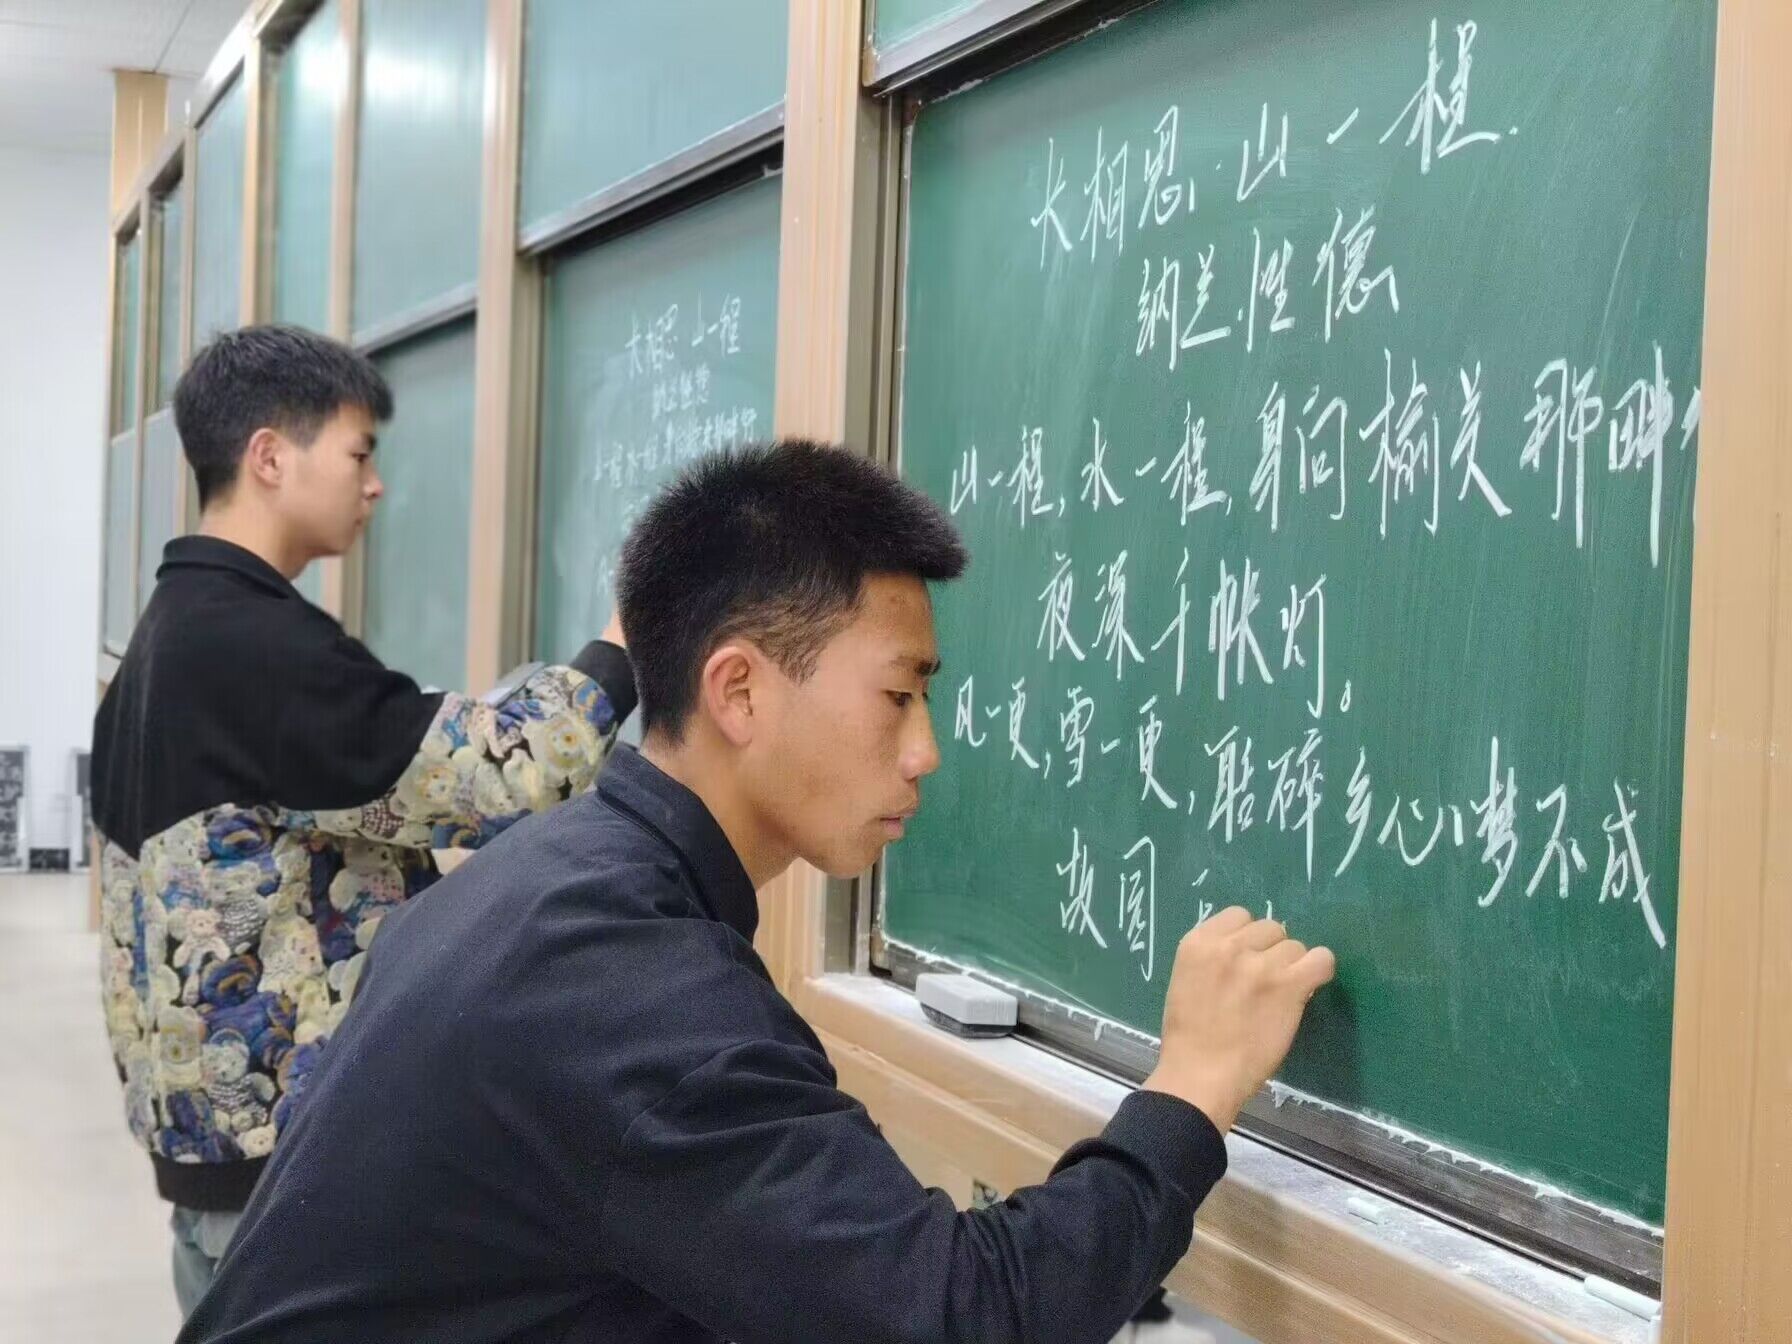 长相思 山一程
纳兰性德
山一程 水一程 身向榆关那畔行
长相思·山一程
纳兰性德
山一程,水一程,身向榆关那畔
夜深千帐灯。
风一更,雪一更,聒碎乡心梦不成
故园